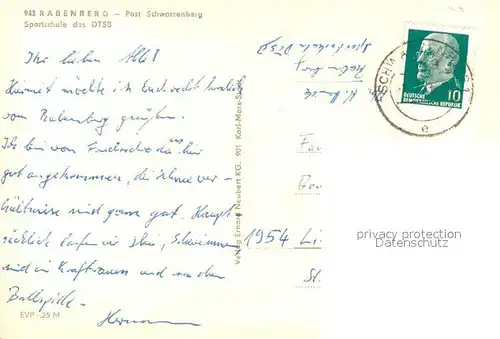 943 RABENBERG – Post Schwarzenberg
Sportschule des DTSB
Ihr lieben Alle!
Hiermit möchte ich Euch recht herzlich
vom Rabenberg grüßen.
Ich bin von Friedrichroda aus hier
gut angekommen, die Schneever-
hältnisse sind ganz gut. Haupt-
sächlich laufen wir Ski, Schwimmen
sind im Kraftraum und machen
Ballspiele.
Hermann
EVP -.25 M
Verlag Erhard Neubert KG. 901 Karl-Marx-Stadt
Sportschule DTSB
Rabenberg
SCHWA
1
e
DEUTSCHE
DEMOKRATISCHE REPUBLIK
10
Fa
1954 Li
St.
privacy protection
Datenschutz